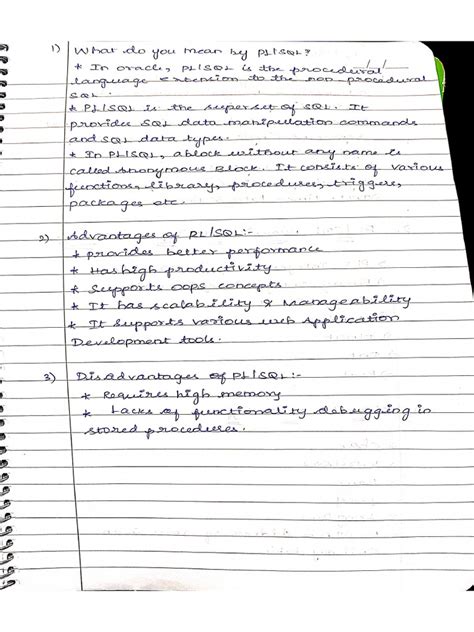 1) What do you mean by PL/SQL?
* In oracle, PL/SQL is the procedural
language extension to the non-procedural
SQL.
* PL/SQL is the superset of SQL. It
provides SQL data manipulation commands
and SQL data types.
* In PL/SQL, a block without any name is
called Anonymous Block. It consists of various
functions, library, procedures, triggers,
packages etc.
2) Advantages of PL/SQL:-
* provides better performance
* Has high productivity
* Supports OOPs concepts
* It has scalability & Manageability
* It supports various web Application
Development tools.
3) Disadvantages of PL/SQL:-
* Requires high memory
* Lacks of functionality debugging in
stored procedures.